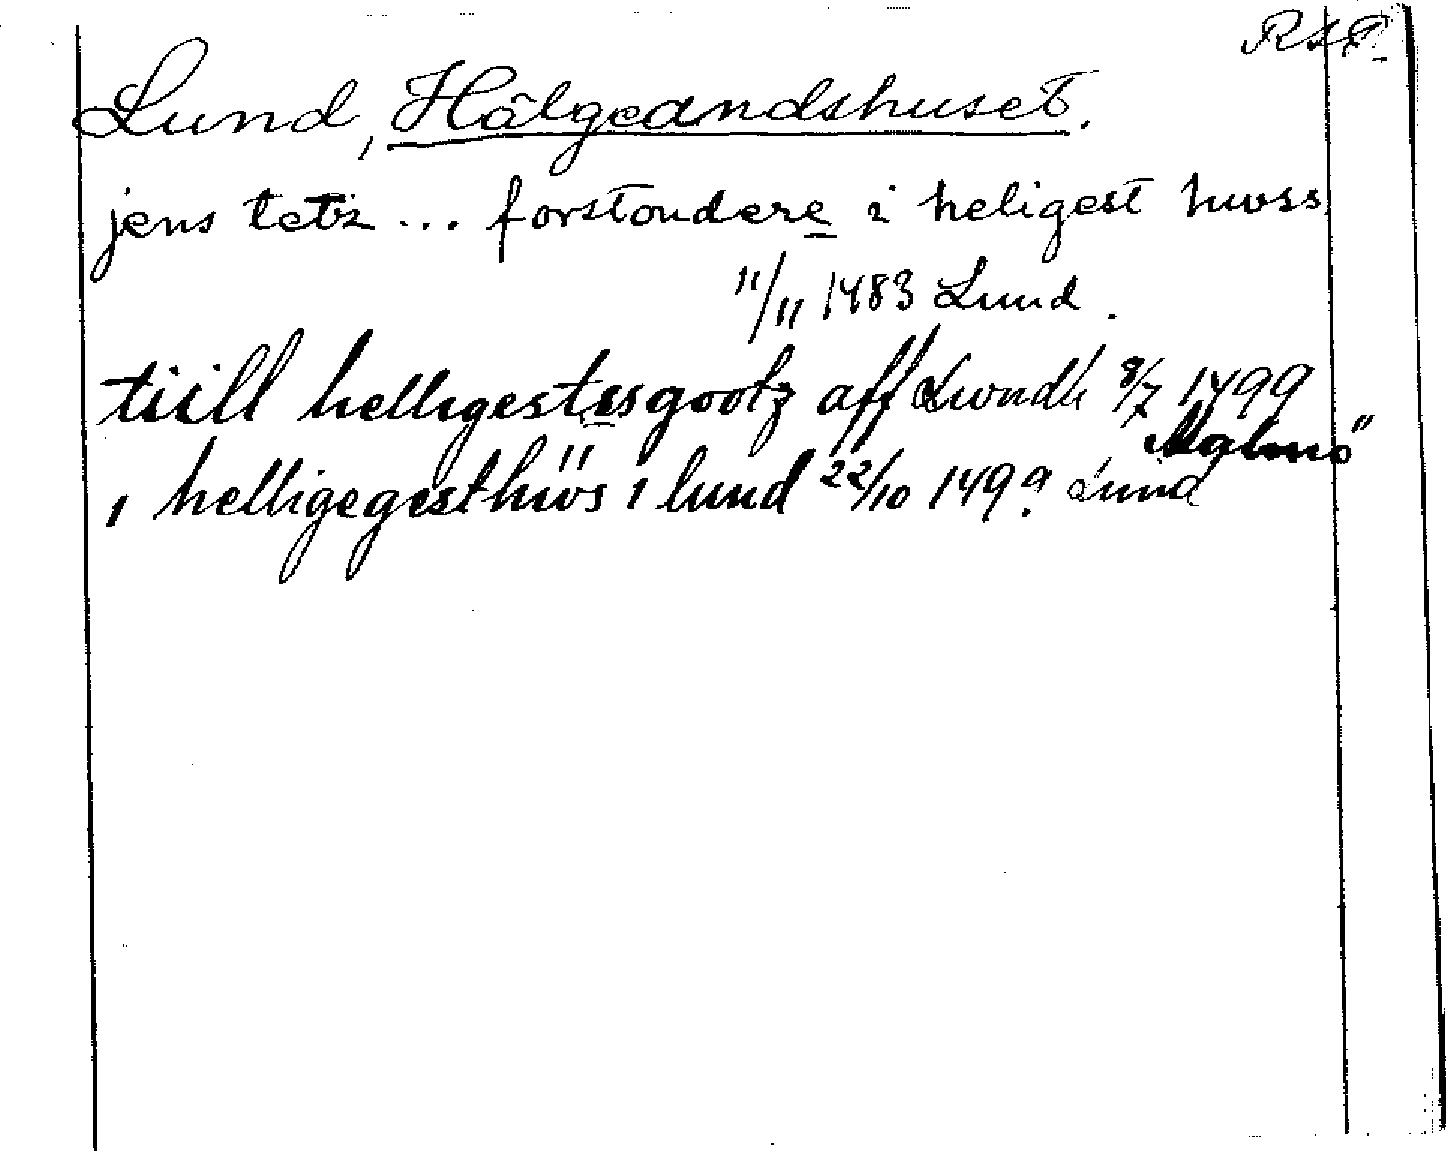 RAP.
Lund, Hälgeandshuset.
jens tetz ... forstondere i heligest hwss
11/11 1483 Lund.
tiill helligestessgootz aff Lwndh 8/7 1499
Malmö
i helligegesthüs i lund 22/10 1499. Lund